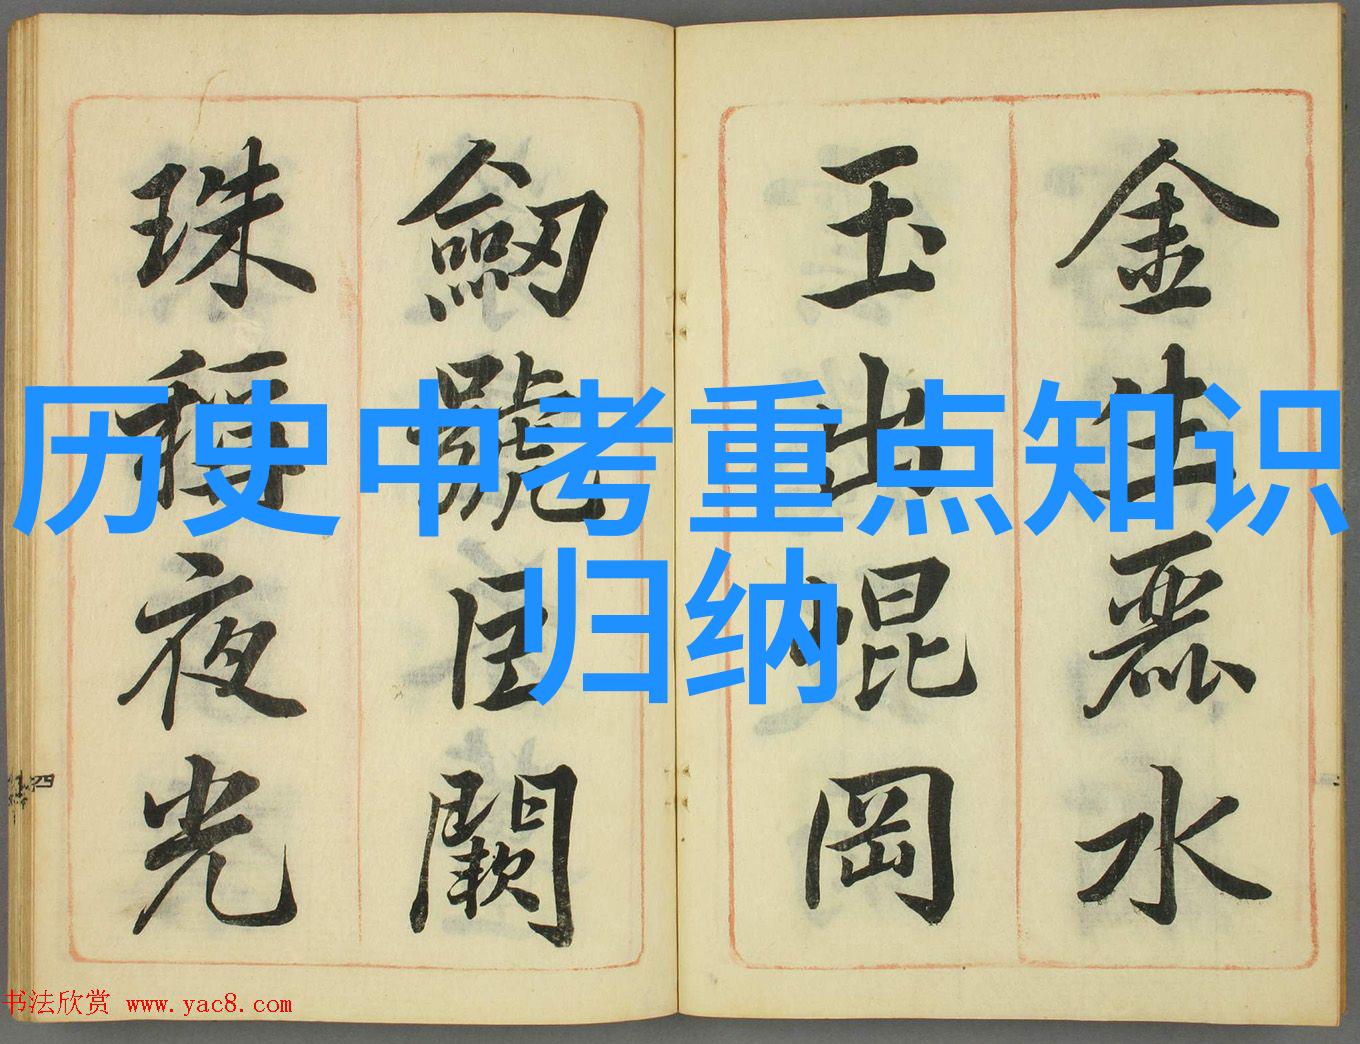 金生麗水
玉出崐岡
劒號巨闕
珠稱夜光
历史中考重点知识
归纳
书法欣赏 www.yac8.com